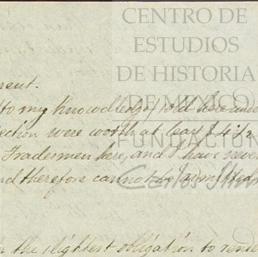 CENTRO DE
ESTUDIOS
DE HISTORIA
DE MÉXICO
FUNDACIÓN
Carlos Slim
to my knowledge, sold here
ection were worth at least £4½
Tradesmen here, and I have never
and therefore cannot be
the slightest obligation to